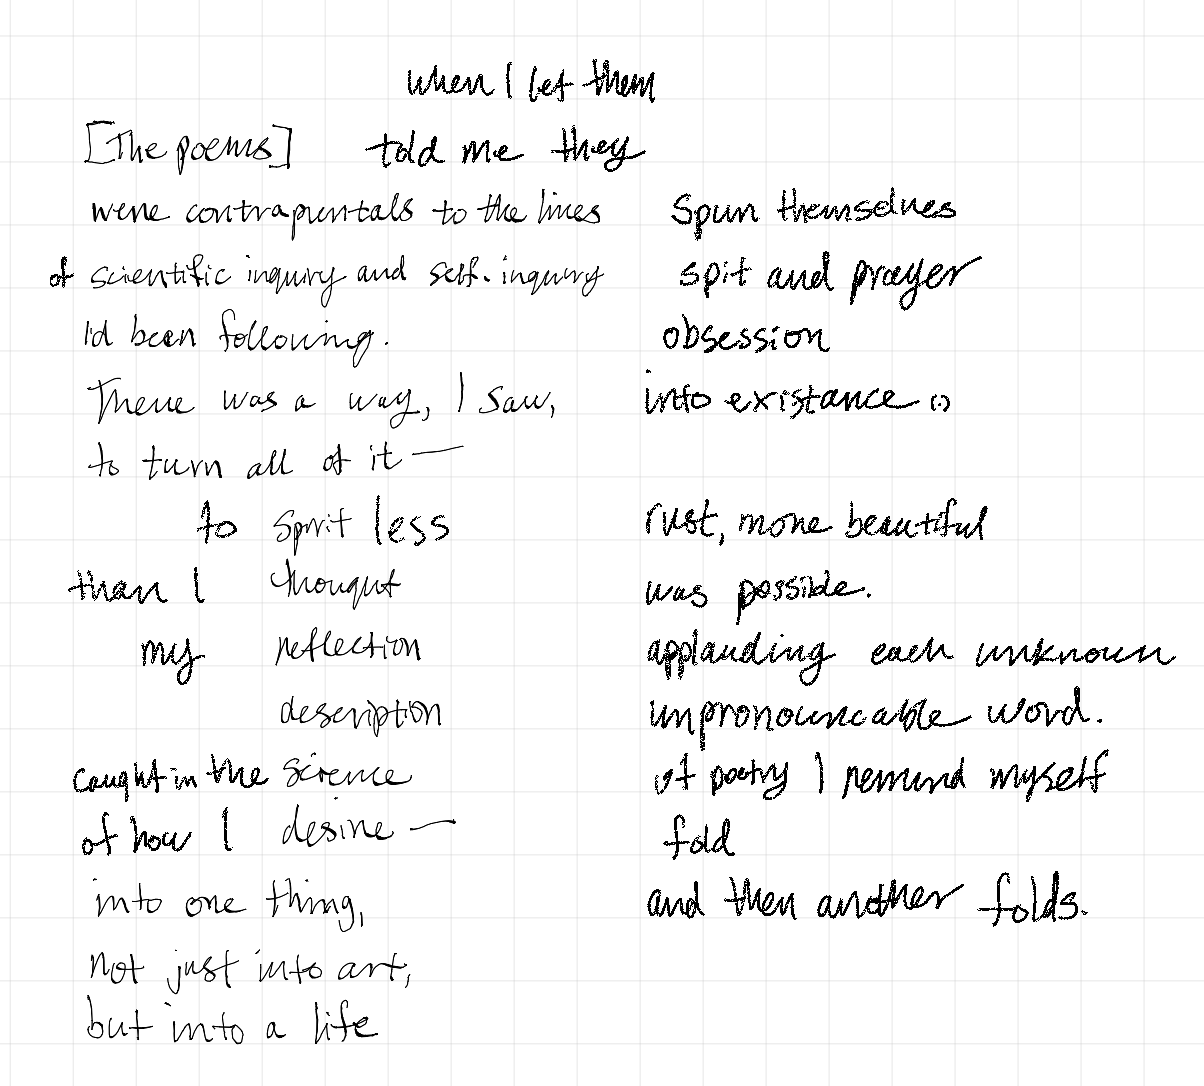 when I let them
[The poems] told me they
were contrapuntals to the lines spun themselves
of scientific inquiry and self-inquiry spit and prayer
I'd been following. obsession
There was a way, I saw, into existance (.)
to turn all of it —
to spirit less rust, more beautiful
than I thought was possible.
my reflection applauding each unknown
description unpronouncable word.
caught in the science of poetry I remind myself
of how I desire — fold
into one thing, and then another folds.
not just into art,
but into a life